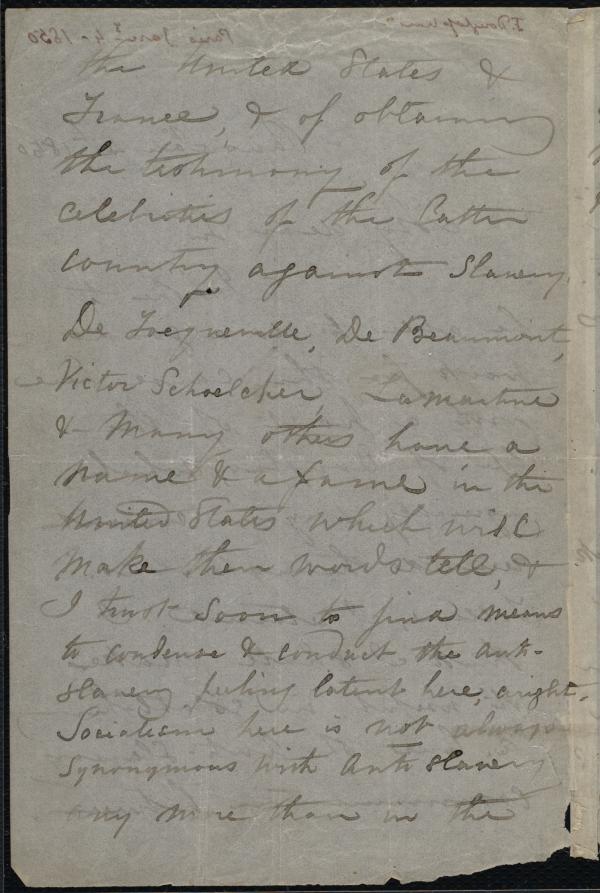 the United States &
France, & of obtaining
the testimony of the
celebrities of the latter
country against Slavery.
De Tocqueville, De Beaumont,
Victor Schoelcher, Lamartine
& Many others have a
name & a fame in the
United States which will
make their words tell, &
I trust soon to find means
to condense & conduct the anti-
slavery feeling latent here, aright.
Socialism here is not always
synonymous with Anti Slavery
any more than in the